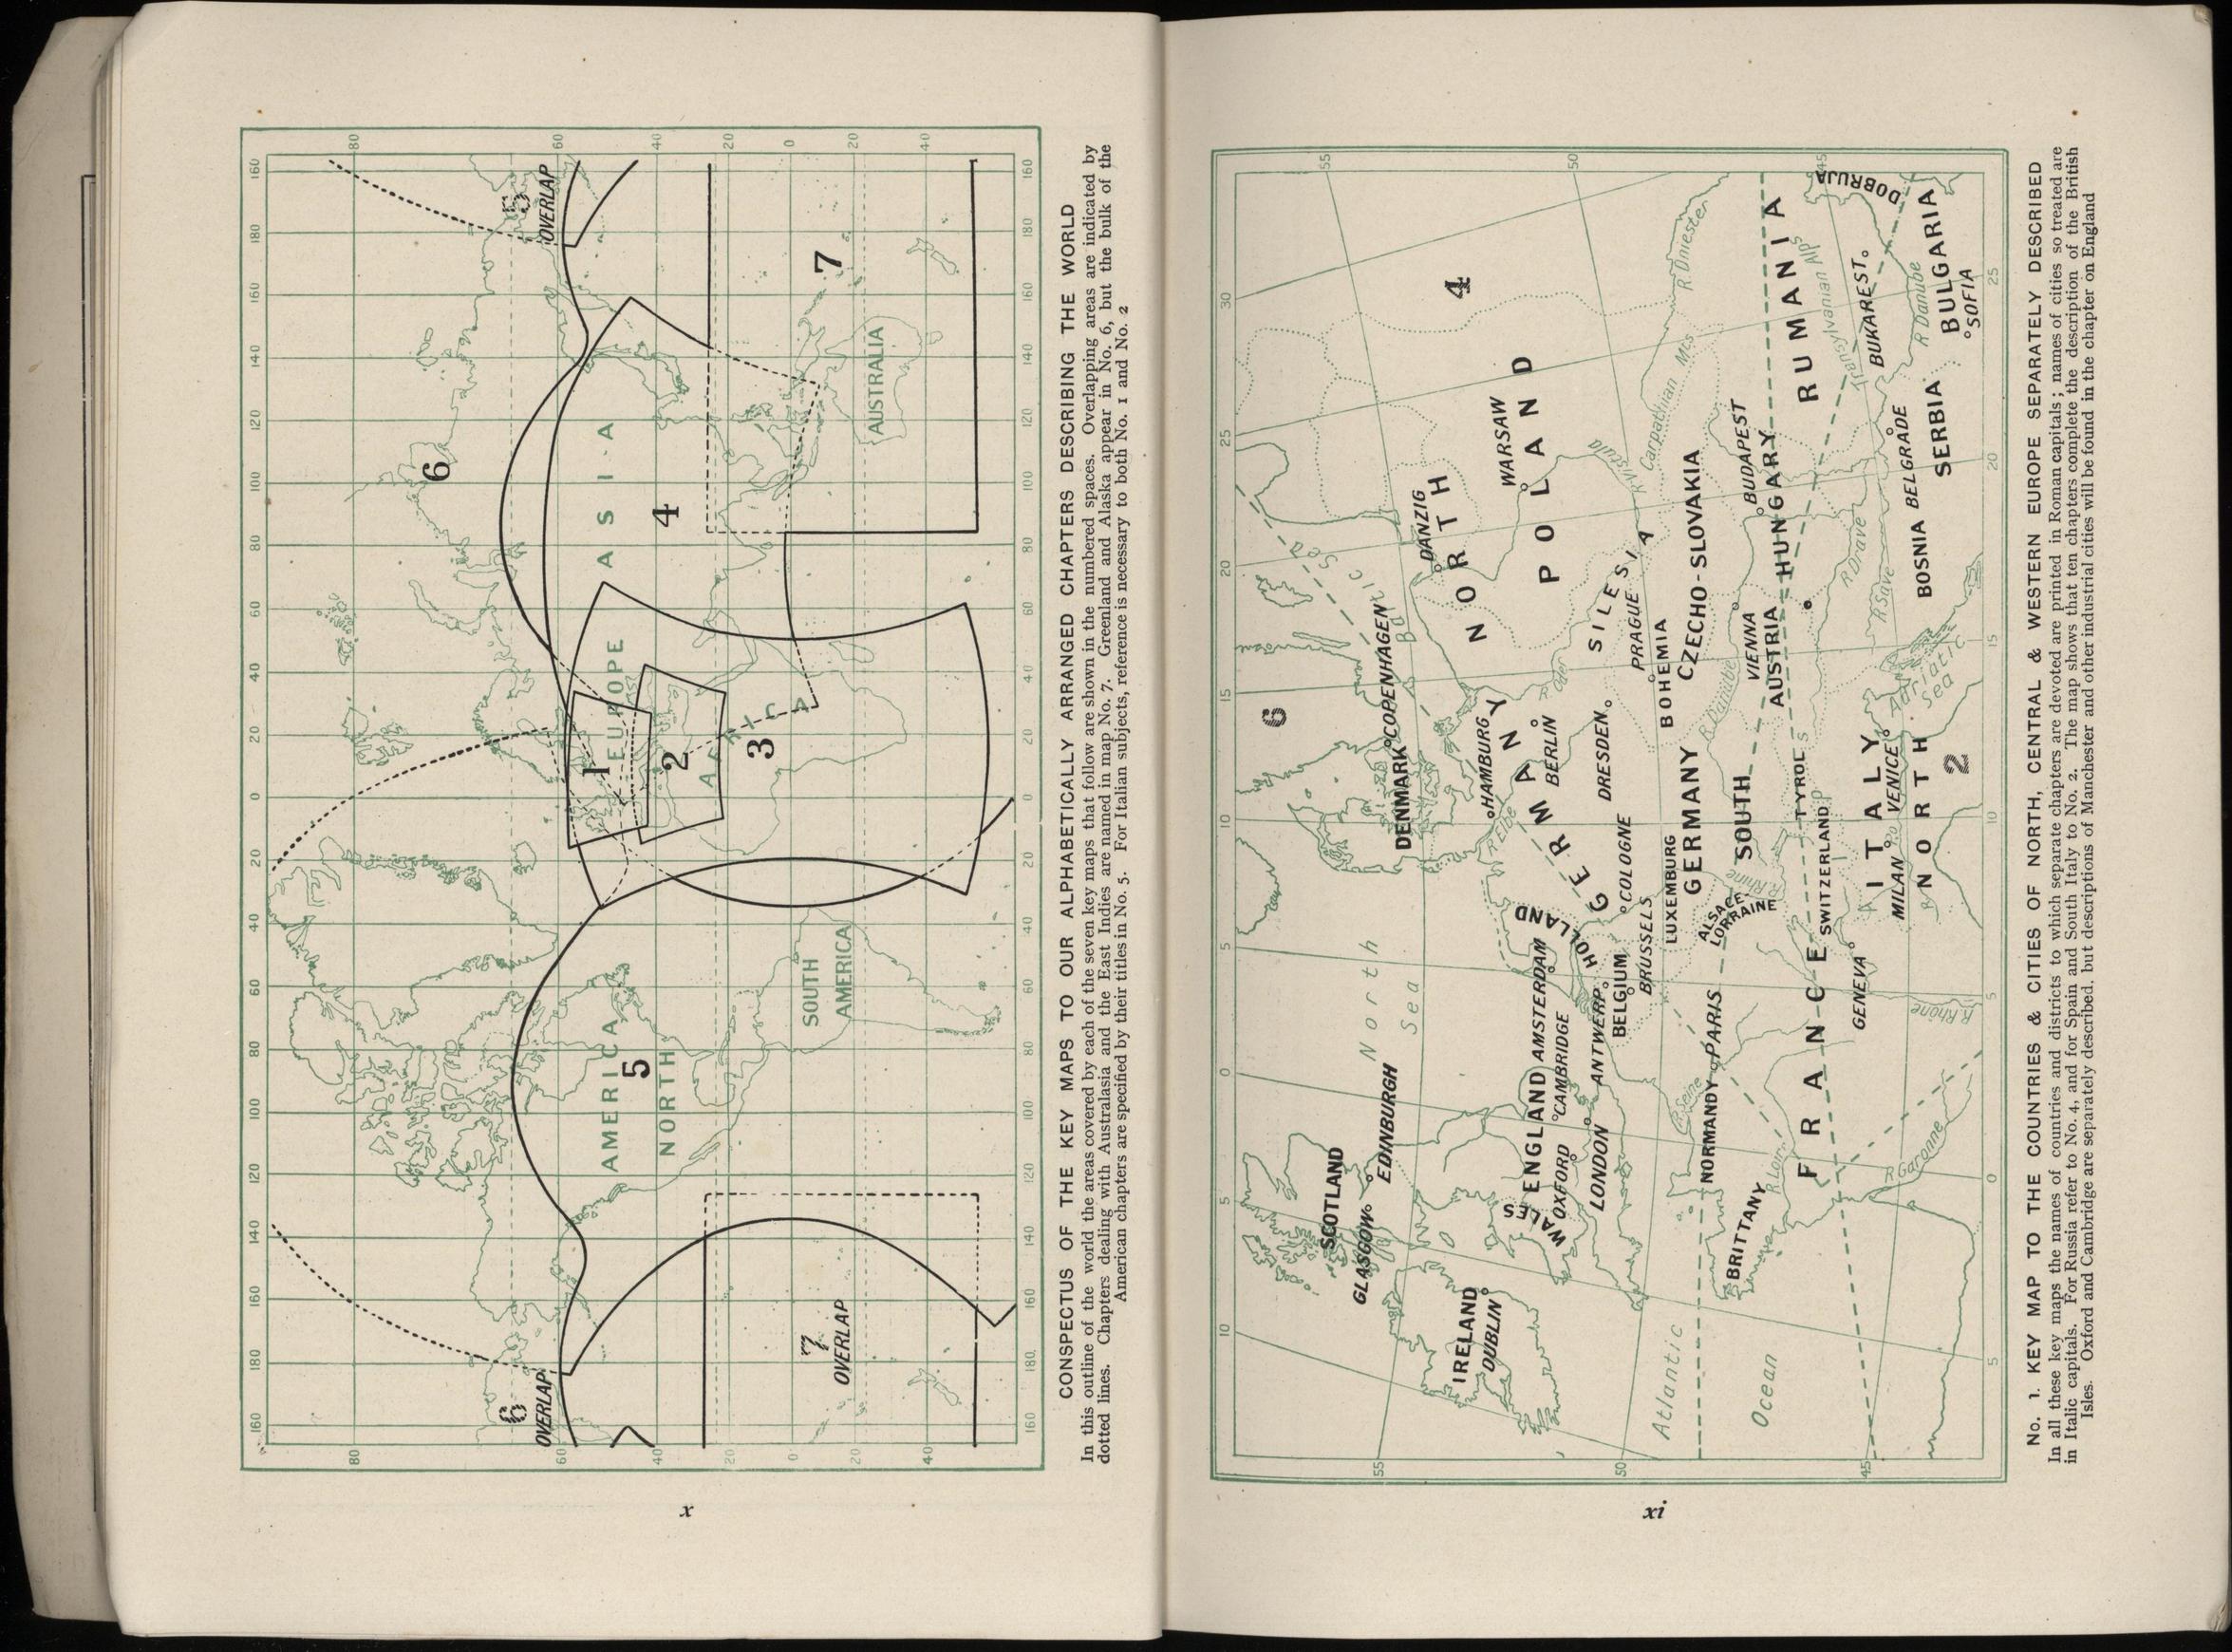 160 180 160 140 120 100 80 60 40 20 0 20 40 60 80 100 120 140 160 180 160
80
80
6
OVERLAP
5
OVERLAP
6
60
60
AMERICA
NORTH
5
EUROPE
1
ASIA
4
40
40
2
20
20
AFRICA
3
0
0
7
OVERLAP
SOUTH
AMERICA
7
20
20
AUSTRALIA
40
40
160 180 160 140 120 100 80 60 40 20 0 20 40 60 80 100 120 140 160 180 160
CONSPECTUS OF THE KEY MAPS TO OUR ALPHABETICALLY ARRANGED CHAPTERS DESCRIBING THE WORLD
In this outline of the world the areas covered by each of the seven key maps that follow are shown in the numbered spaces. Overlapping areas are indicated by
dotted lines. Chapters dealing with Australasia and the East Indies are named in map No. 7. Greenland and Alaska appear in No. 6, but the bulk of the
American chapters are specified by their titles in No. 5. For Italian subjects, reference is necessary to both No. 1 and No. 2
x
10 5 0 5 10 15 20 25 30
6
55
55
SCOTLAND
GLASGOW
EDINBURGH
North
Sea
DENMARK
COPENHAGEN
Baltic Sea
DANZIG
4
IRELAND
DUBLIN
HAMBURG
R. Elbe
NORTH
GERMANY
BERLIN
WARSAW
POLAND
WALES
ENGLAND
OXFORD
CAMBRIDGE
LONDON
AMSTERDAM
HOLLAND
ANTWERP
BELGIUM
BRUSSELS
COLOGNE
DRESDEN
R. Oder
SILESIA
R. Vistula
50
50
PRAGUE
BOHEMIA
LUXEMBURG
Carpathian Mts
R. Dniester
Atlantic
Ocean
R. Seine
NORMANDY
PARIS
BRITTANY
R. Loire
ALSACE
LORRAINE
R. Rhine
SOUTH
GERMANY
R. Danube
CZECHO-SLOVAKIA
VIENNA
AUSTRIA
BUDAPEST
HUNGARY
RUMANIA
FRANCE
SWITZERLAND
TYROL
GENEVA
Transylvanian Alps
45
45
DOBRUJA
R. Drave
R. Save
BUKAREST
MILAN
VENICE
R. Po
ITALY
NORTH
Adriatic
Sea
BELGRADE
BOSNIA
SERBIA
R. Danube
BULGARIA
SOFIA
R. Garonne
R. Rhône
2
5 0 5 10 15 20 25
No. 1. KEY MAP TO THE COUNTRIES & CITIES OF NORTH, CENTRAL & WESTERN EUROPE SEPARATELY DESCRIBED
In all these key maps the names of countries and districts to which separate chapters are devoted are printed in Roman capitals; names of cities so treated are
in Italic capitals. For Russia refer to No. 4, and for Spain and South Italy to No. 2. The map shows that ten chapters complete the description of the British
Isles. Oxford and Cambridge are separately described, but descriptions of Manchester and other industrial cities will be found in the chapter on England
xi